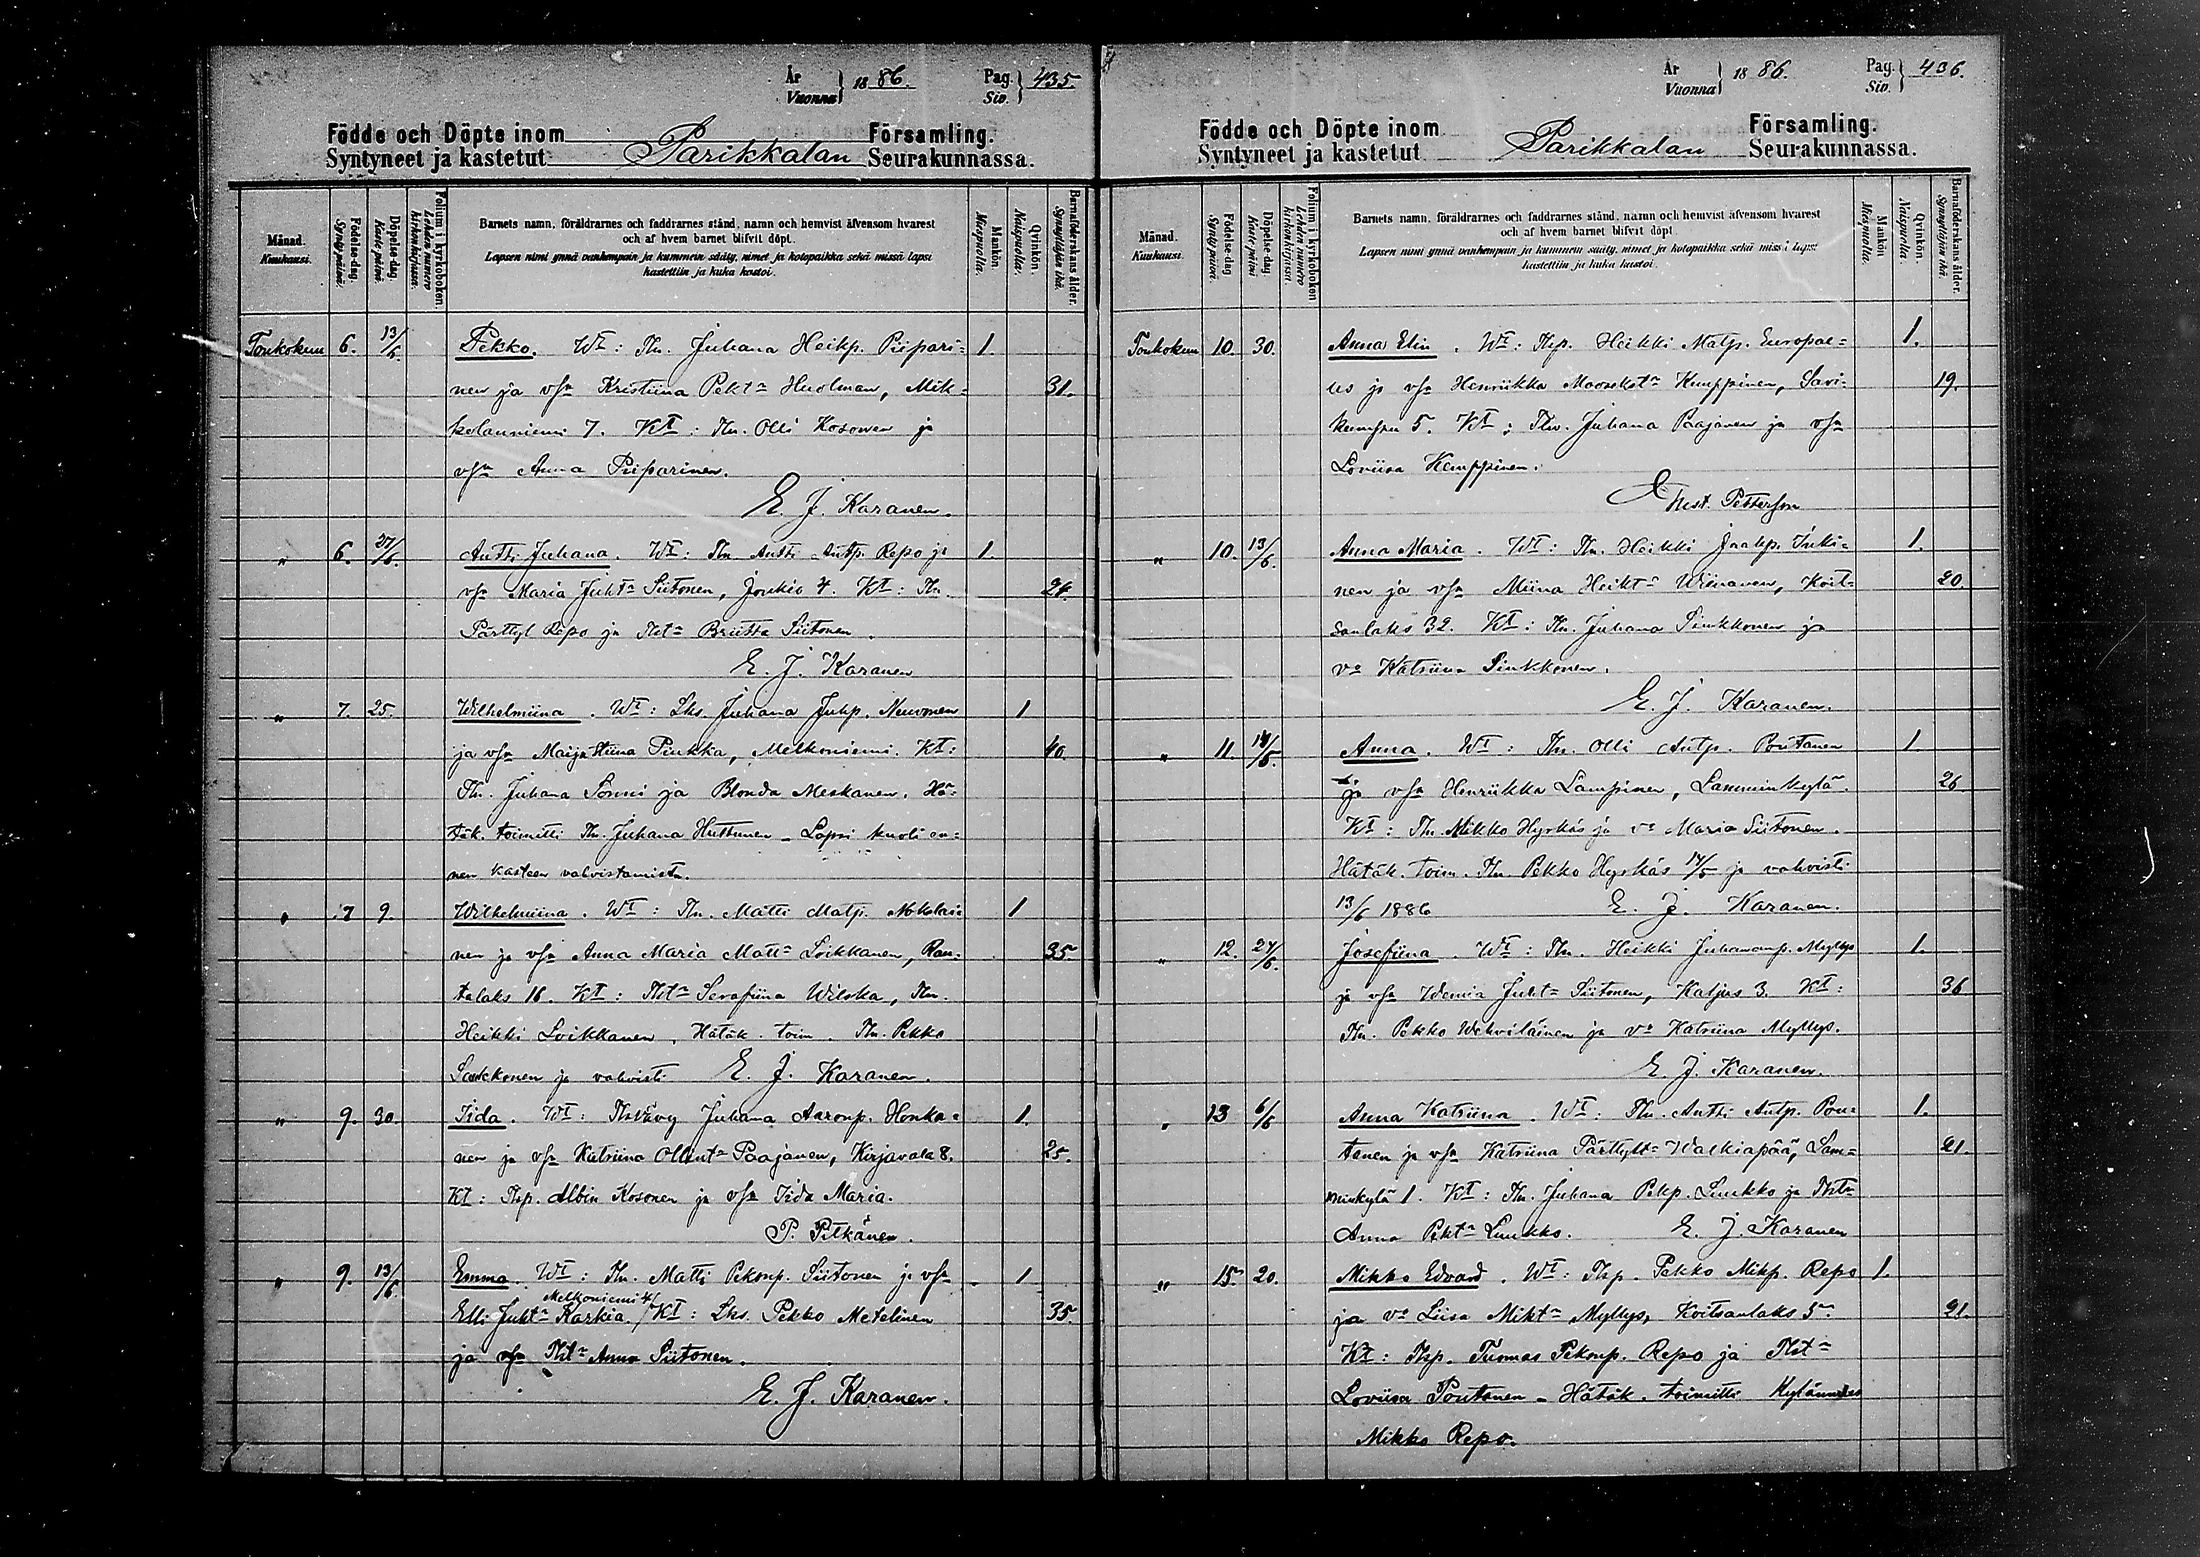 År Vuonna } 1886. Pag. Siv. } 435.
Födde och Döpte inom Församling.
Syntyneet ja kastetut Parikkalan Seurakunnassa.
Månad. Kuukausi.
Födelse-dag. Syntypäivä.
Döpelse-dag. Kastepäivä.
Folium i kyrkoboken. Lehden numero kirkonkirjassa.
Barnets namn, föräldrarnes och faddrarnes stånd, namn och hemvist äfvensom hvarest
och af hvem barnet blifvit döpt.
Lapsen nimi ynnä vanhempain ja kummein sääty, nimet ja kotopaikka sekä missä lapsi
kastettiin ja kuka kastoi.
Mankön. Miespuolia.
Qvinkön. Naispuolia.
Barnaföderskans ålder. Synnyttäjän ikä.
Toukokuu 6. 13/6. Pekko. Wt: Tln. Juhana Heikp. Piipari= 1.
nen ja vsa Kristiina Pekta Huolman, Mik= 31.
kolanniemi 7. Kt: Tln. Olli Kosonen ja
vsa Anna Piiparinen.
E. J. Karanen.
" 6. 27/6. Antti Juhana. Wt: Tln Antti Antp. Repo ja 1.
vsa Maria Juhta Siitonen, Joukio 4. Kt: Tln. 24.
Pärttyl Repo ja Tlta Briitta Siitonen.
E. J. Karanen
" 7. 25. Wilhelmiina. Wt: Lks. Juhana Juhp. Neuvonen 1
ja vsa Maija Stiina Pinkka, Melkoniemi. Kt: 40.
Tln. Juhana Sonni ja Blonda Meskanen. Hä=
täk. toimitti Tln. Juhana Huttunen – Lapsi kuoli en=
nen kasteen vahvistamista.
" 7 9. Wilhelmiina. Wt: Tln. Matti Matp. Mokolai= 1
nen ja vsa Anna Maria Matta Loikkanen, Ran= 35
talaks 16. Kt: Tlta Serafiina Wilska, Tln.
Heikki Loikkanen, Hätäk. toim. Tln. Pekko
Saukkonen ja vahvisti E. J. Karanen.
" 9. 30. Iida. Wt: Juhana Aaronp. Honka= 1.
nen ja vsa Katriina Ollinta Paajanen, Kirjavala 8. 25.
Kt: Tlp. Albin Kosonen ja vsa Iida Maria.
P. Pitkänen.
" 9. 13/6. Emma. Wt: Tln. Matti Pekonp. Siitonen ja vsa 1
Melkoniemi 4
Elli Juhta Karkia. / Kt: Lks. Pekko Metelinen 35.
ja vsa Tlta Anna Siitonen.
E. J. Karanen.
År Vuonna } 1886. Pag. Siv. } 436.
Födde och Döpte inom Församling.
Syntyneet ja kastetut Parikkalan Seurakunnassa.
Månad. Kuukausi.
Födelse-dag. Syntypäivä.
Döpelse-dag. Kastepäivä
Folium i kyrkoboken Lehden numero kirkonkirjassa.
Barnets namn, föräldrarnes och faddrarnes stånd, namn och hemvist äfvensom hvarest
och af hvem barnet blifvit döpt.
Lapsen nimi ynnä vanhempain ja kummein sääty, nimet ja kotopaikka sekä missä lapsi
kastettiin ja kuka kastoi.
Mankön Miespuolia.
Qvinkön. Naispuolia.
Barnaföderskans ålder. Synnyttäjän ikä.
Toukokuu 10. 30. Anna Elin. Wt: Tlp. Heikki Matp. Europae= 1.
us ja vsa Henriikka Kemppinen, Savi= 19.
kumpu 5. Kt: Tln. Juhana Paajanen ja vsa
Loviisa Kemppinen.
Petterson
" 10. 13/6. Anna Maria. Wt: Tln. Heikki Jaakp. Inki= 1.
nen ja vsa Miina Heikta Wiinanen, Koit= 20.
sanlaks 32. Kt: Tln. Juhana Sinkkonen ja
va Katriina Sinkkonen.
E. J. Karanen.
" 11. 14/5. Anna. Wt: Tln. Olli Antp. Poutanen 1
ja vsa Henriikka Lampinen, Lamminkylä. 26
Kt: Tln Mikko Hyrkäs ja va Maria Siitonen.
Hätäk. toim. Tln. Pekko Hyrkäs 14/5 ja vahvisti
13/6 1886 E. J. Karanen.
" 12. 27/6. Josefiina. Wt: Tln. Heikki Juhananp. Myllys 1.
ja vsa Juhta Siitonen, Katjus 3. Kt: 36
Tln. Pekko Wehviläinen ja va Katriina Myllys.
E. J. Karanen.
" 13 6/6 Anna Katriina. Wt: Tln. Antti Antp. Pou= 1.
tanen ja vsa Katriina Pärttylta Walkiapää, Lam= 21.
minkylä 1. Kt: Tln. Juhana Pekp. Luukko ja Tlta
Anna Pekta Luukko. E. J. Karanen
" 15 20. Mikko Edvard. Wt: Tlp. Pekko Mikp. Repo 1.
ja va Liisa Mikta Myllys, Koitsanlaks 5. 21.
Kt: Tlp. Tuomas Pekonp. Repo ja Tlta
Loviisa Poutanen – Hätäk. toimitti
Mikko Repo.